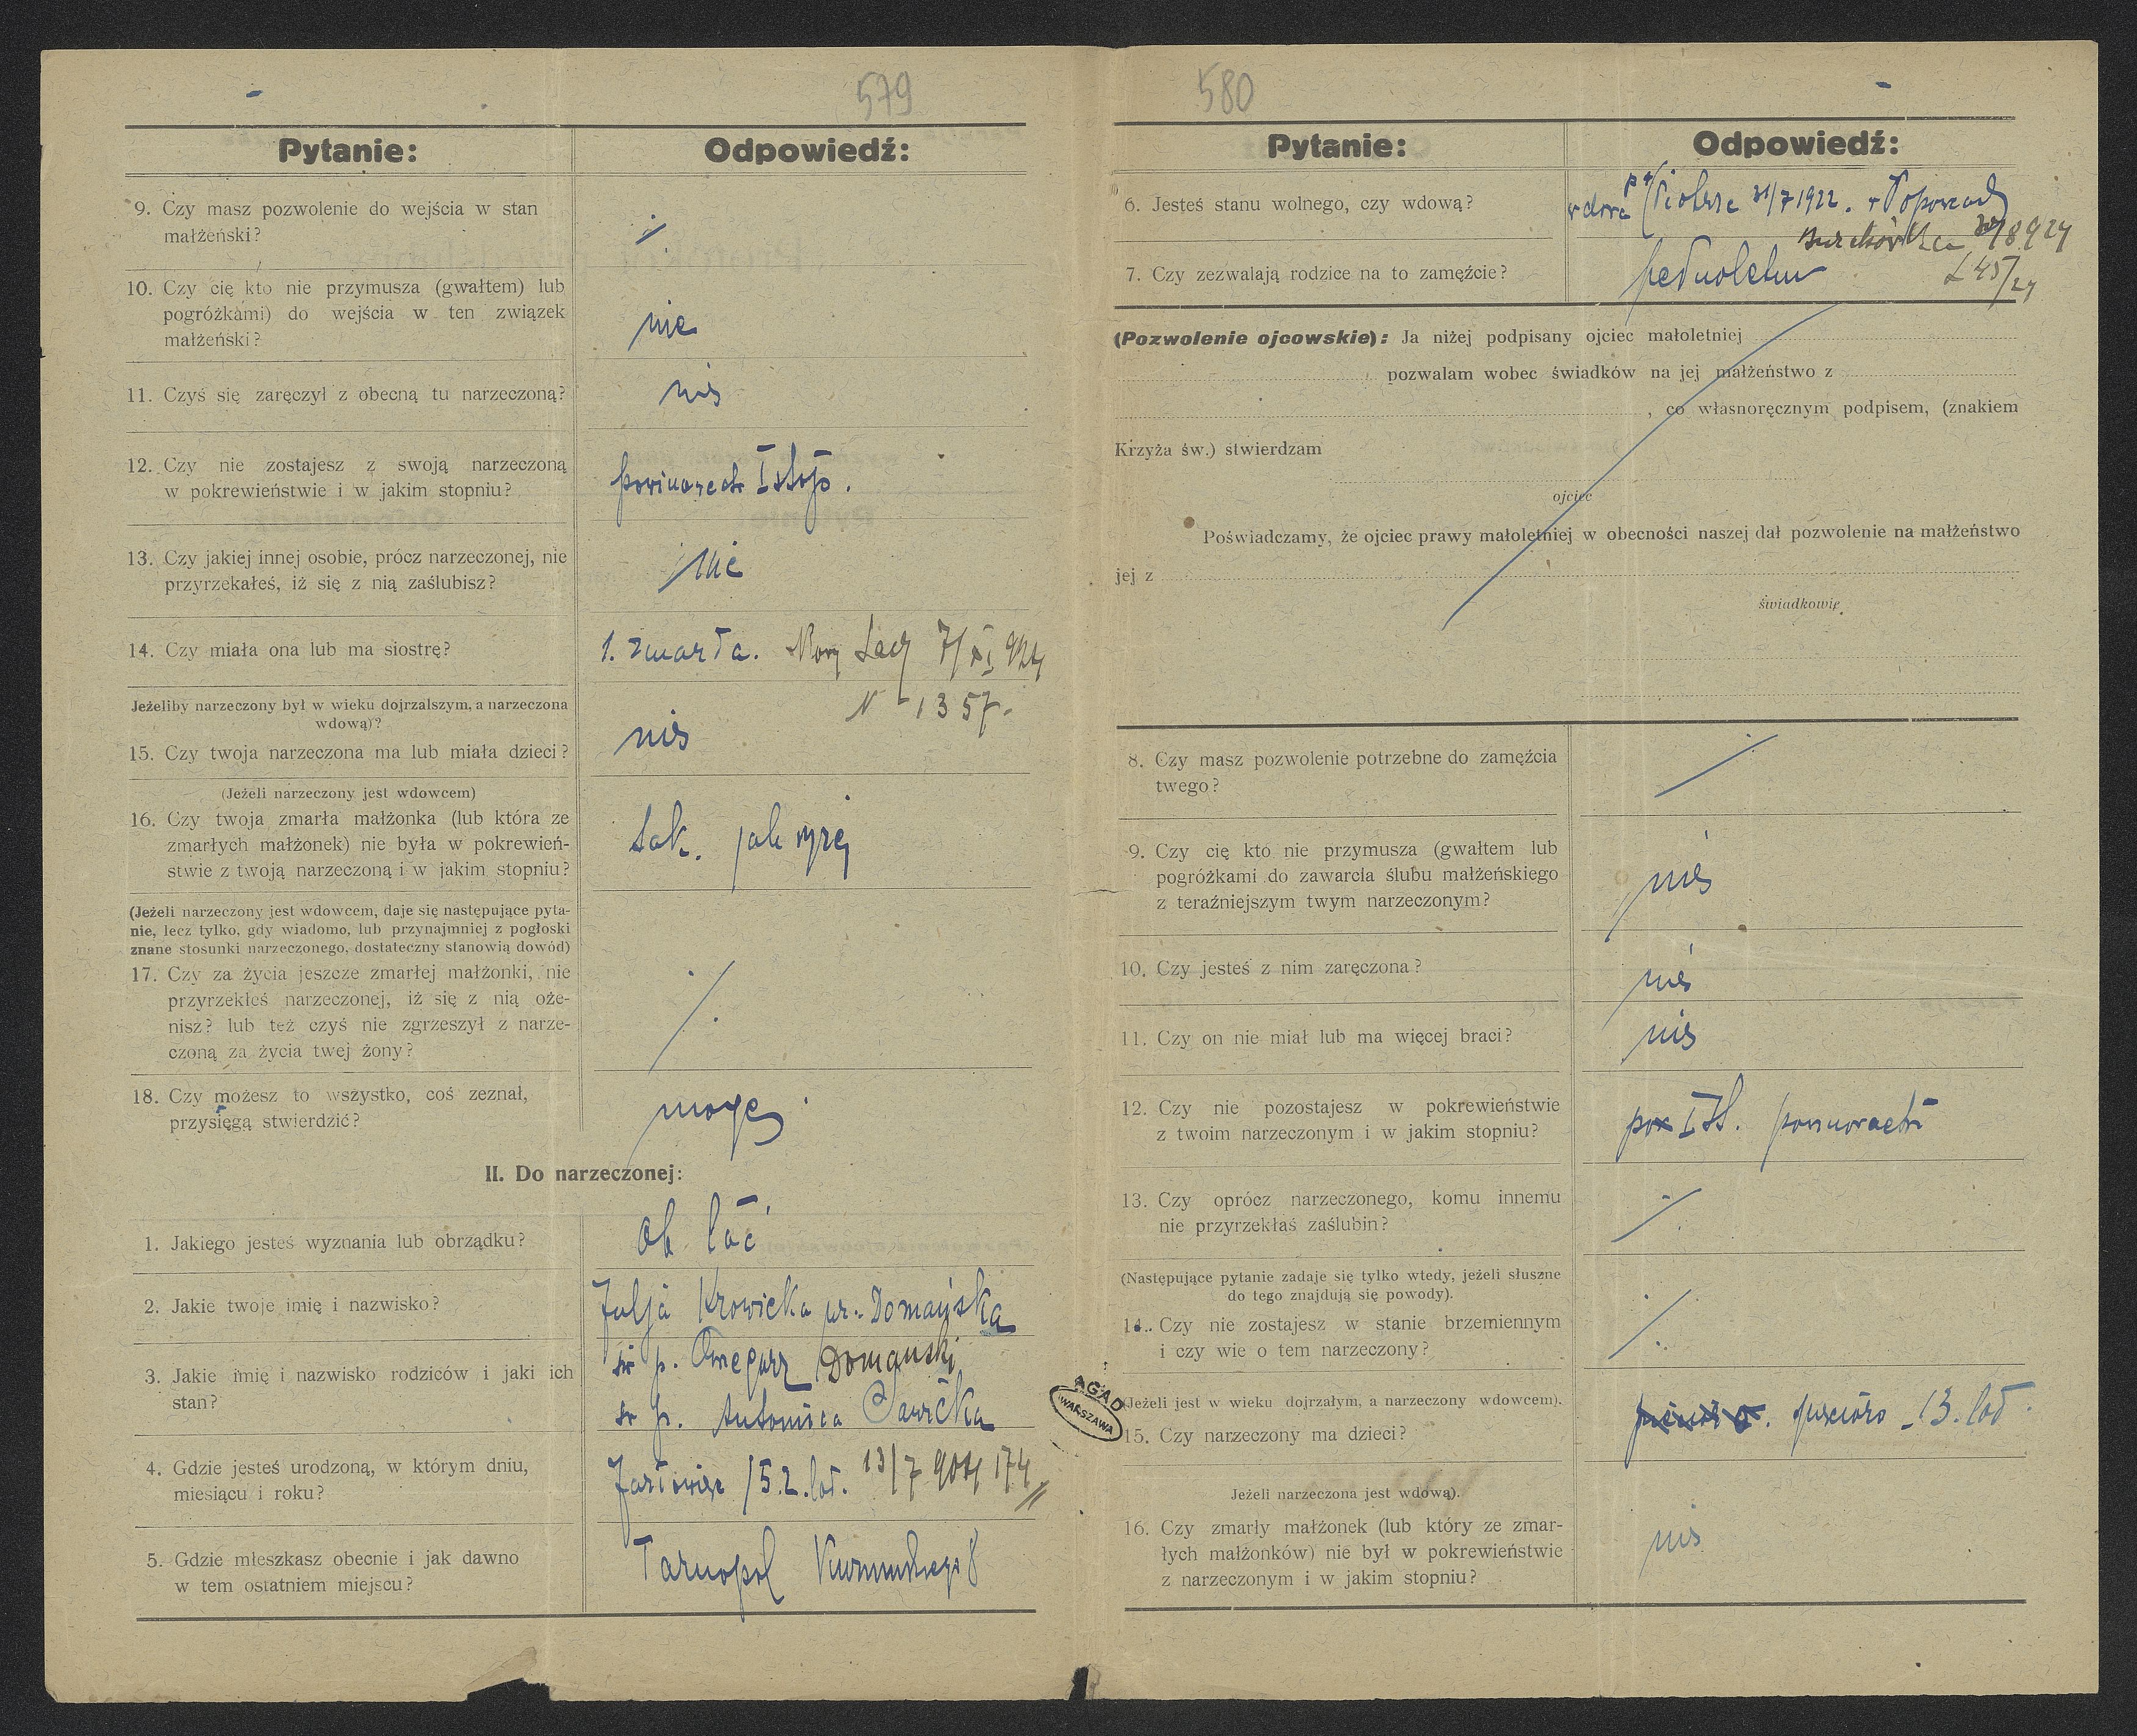 579
Pytanie:
Odpowiedź:
9. Czy masz pozwolenie do wejścia w stan
małżeński?
10. Czy cię kto nie przymusza (gwałtem) lub
pogróżkami) do wejścia w ten związek
małżeński?
nie
11. Czyś się zaręczył z obecną tu narzeczoną?
nie
12. Czy nie zostajesz z swoją narzeczoną
w pokrewieństwie i w jakim stopniu?
powinowactw I stop.
13. Czy jakiej innej osobie, prócz narzeczonej, nie
przyrzekałeś, iż się z nią zaślubisz?
nie
14. Czy miała ona lub ma siostrę?
1. zmarła. Nowy Sącz 7/XI 924
N 1357.
Jeżeliby narzeczony był w wieku dojrzalszym, a narzeczona
wdową)?
15. Czy twoja narzeczona ma lub miała dzieci?
nie
(Jeżeli narzeczony jest wdowcem)
16. Czy twoja zmarła małżonka (lub która ze
zmarłych małżonek) nie była w pokrewień-
stwie z twoją narzeczoną i w jakim stopniu?
tak. jak wyżej
(Jeżeli narzeczony jest wdowcem, daje się następujące pyta-
nie, lecz tylko, gdy wiadomo, lub przynajmniej z pogłoski
znane stosunki narzeczonego, dostateczny stanowią dowód)
17. Czy za życia jeszcze zmarłej małżonki, nie
przyrzekłeś narzeczonej, iż się z nią oże-
nisz? lub też czyś nie zgrzeszył z narze-
czoną za życia twej żony?
18. Czy możesz to wszystko, coś zeznał,
przysięgą stwierdzić?
mogę
II. Do narzeczonej:
1. Jakiego jesteś wyznania lub obrządku?
ob. łać
2. Jakie twoje imię i nazwisko?
Julja Krowicka ur. Domańska
3. Jakie imię i nazwisko rodziców i jaki ich
stan?
św p. Domański
św p. Antonina Sawicka
4. Gdzie jesteś urodzoną, w którym dniu,
miesiącu i roku?
Jazłowiec 13/7 904 174
5. Gdzie mieszkasz obecnie i jak dawno
w tem ostatniem miejscu?
Tarnopol
580
Pytanie:
Odpowiedź:
6. Jesteś stanu wolnego, czy wdową?
wdowa 31/7 1922.
7. Czy zezwalają rodzice na to zamęźcie?
pełnoletnia
L 45/24
(Pozwolenie ojcowskie): Ja niżej podpisany ojciec małoletniej
pozwalam wobec świadków na jej małżeństwo z
, co własnoręcznym podpisem, (znakiem
Krzyża św.) stwierdzam
ojciec
Poświadczamy, że ojciec prawy małoletniej w obecności naszej dał pozwolenie na małżeństwo
jej z
świadkowie
8. Czy masz pozwolenie potrzebne do zamęźcia
twego?
9. Czy cię kto nie przymusza (gwałtem lub
pogróżkami do zawarcia ślubu małżeńskiego
z teraźniejszym twym narzeczonym?
nie
10. Czy jesteś z nim zaręczona?
nie
11. Czy on nie miał lub ma więcej braci?
nie
12. Czy nie pozostajesz w pokrewieństwie
z twoim narzeczonym i w jakim stopniu?
I st. powinowactw
13. Czy oprócz narzeczonego, komu innemu
nie przyrzekłaś zaślubin?
(Następujące pytanie zadaje się tylko wtedy, jeżeli słuszne
do tego znajdują się powody).
14. Czy nie zostajesz w stanie brzemiennym
i czy wie o tem narzeczony?
(Jeżeli jest w wieku dojrzałym, a narzeczony wdowcem).
15. Czy narzeczony ma dzieci?
13. lat
AGAD
WARSZAWA
Jeżeli narzeczona jest wdową).
16. Czy zmarły małżonek (lub który ze zmar-
łych małżonków) nie był w pokrewieństwie
z narzeczonym i w jakim stopniu?
nie